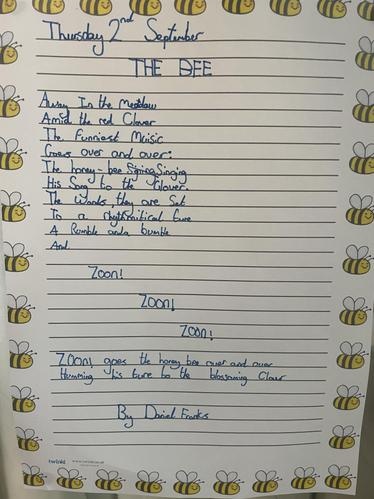 Thursday 2nd September
THE BEE
Away In the Meddow
Amid the red Clover
The Funniest Muisic
Goes over and over:
The honey-bee Singing
His Song to the Clover.
The Words, they are Set
To a rhythmitical tune
A Rumble and a bumble
And
Zoon!
Zoon!
Zoon!
Zoon! goes the honey bee over and over
Humming his tune to the blossoming Clover
By Daniel Franks
twinkl